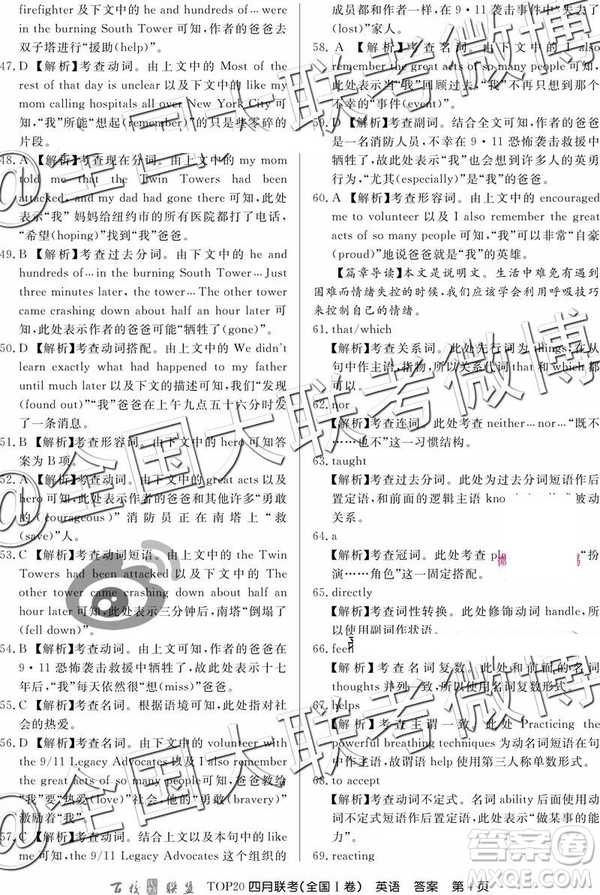 firefighter 及下文中的 he and hundreds of… were
in the burning South Tower 可知，作者的爸爸去
双子塔进行“援助(help)”。
47. D 【解析】考查动词。由上文中的 Most of the
rest of that day is unclear 以及下文中的 like my
mom calling hospitals all over New York City 可
知，“我”所能“想起(remember)”的只是些零碎的
片段。
48. A 【解析】考查现在分词。由上文中的 my mom
told me that the Twin Towers had been
attacked, and my dad had gone there 可知，此
处表示“我”妈妈给纽约市的所有医院都打了电话，
“希望(hoping)”找到“我”爸爸。
49. B 【解析】考查过去分词。由下文中的 he and
hundreds of … in the burning South Tower … Just
three minutes later, the tower … The other tower
came crashing down about half an hour later 可
知，此处表示作者的爸爸可能“牺牲了(gone)”。
50. D 【解析】考查动词搭配。由上文中的 We didn't
learn exactly what had happened to my father
until much later 以及下文可知，我们“发现
(found out)”“我”爸爸在上午九点五十六分时发
了一条消息。
51. B 【解析】考查形容词。由下文中的 hero 可知答
案为 B 项。
52. A 【解析】考查动词。由下文中的 great acts 以及
hero 可知，此处表示作者的爸爸和其他许多“勇敢
的(courageous)”消防员正在南塔上“救
(save)”人。
53. C 【解析】考查动词短语。由上文中的 the Twin
Towers had been attacked 以及下文中的 The
other tower came crashing down about half an
hour later 可知，此处表示三分钟后，南塔“倒塌了
(fell down)”。
54. A 【解析】考查动词。由上文可知，作者的爸爸在
9·11 恐怖袭击救援中牺牲了，故此处表示十七
年后，“我”仍然“想(miss)”爸爸。
55. C 【解析】考查名词。根据语境可知，此处表示对
社会的热爱。
56. D 【解析】考查名词。由下文中的 volunteer with
the 9/11 Legacy Advocates 以及下文中的 remember
the great acts of so many people 可知，爸爸教给
“我”要“热爱(love)”和“勇敢(bravery)”
激励着“我”。
57. C 【解析】考查动词。由上文以及本句中的 like
me … the 9/11 Legacy Advocates 可知，此处表示
成员都和作者一样在 9·11 事件中“失去了
(lost)”家人。
58. A 【解析】考查名词。由下文中的 I also
remember the great acts of so many people 可知，
此处表示当“我”回顾过去时，“我”不再只想到那
不幸的“事件(event)”。
59. D 【解析】考查副词。结合全文可知，作者的爸爸
是一名消防人员，不幸在 9·11 恐怖袭击救援中
牺牲了，故“我”也会想到许多人的英勇
行为，“尤其(especially)”是“我”的爸爸。
60. A 【解析】考查形容词。由上文中的 encouraged
me to volunteer 以及 I also remember the great
acts of so many people 可知，“我”可以非常“自豪
(proud)”地说爸爸就是我的英雄。
【篇章导读】本文是说明文。生活中难免有遇到
困难而情绪失控的时候，我们应该学会利用呼吸技巧
来控制自己的情绪。
61. that/which
【解析】考查关系词。此处先行词为 things，在从
句中作主语，指物，所以关系代词 that 和 which 都
可以。
62. nor
【解析】考查连词。此处考查 neither…nor…“既不
……也不……”这一习惯结构。
63. taught
【解析】考查过去分词。此处过去分词短语作后
置定语，和前面的逻辑主语
被动关系。
64. a
【解析】考查冠词。此处考查 “扮
演……角色”这一固定搭配。
65. directly
【解析】考查词性转换。此处修饰动词 handle，所
以使用副词作状语。
66.
【解析】考查名词复数。此处和前面的名词
thoughts 并列一致，所以使用名词复数形式。
67. helps
【解析】考查主谓一致。此处 Practicing the
powerful breathing techniques 为动名词短语在句
中作主语，故谓语 help 使用第三人称单数形式。
68. to accept
【解析】考查动词不定式。名词 ability 后面使用
动词不定式短语作后置定语，表示“做某事的能
力”。
69. reacting
百校联盟 TOP20 四月联考(全国Ⅰ卷) 英语 答案 第4页
@全国大联考微博
@全国大联考微博
@全国大联考微博